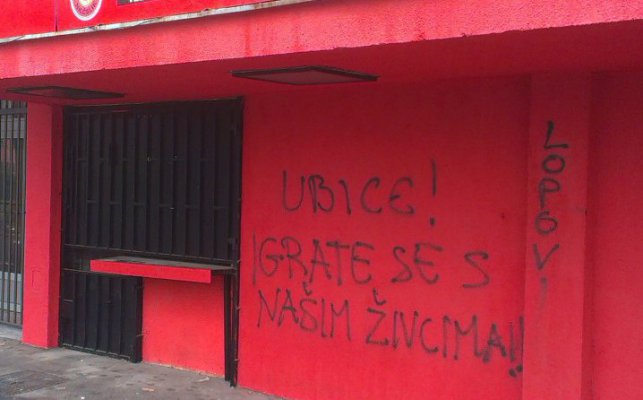 UBICE!
IGRATE SE S
NAŠIM ŽIVCIMA!!
LOPOVI